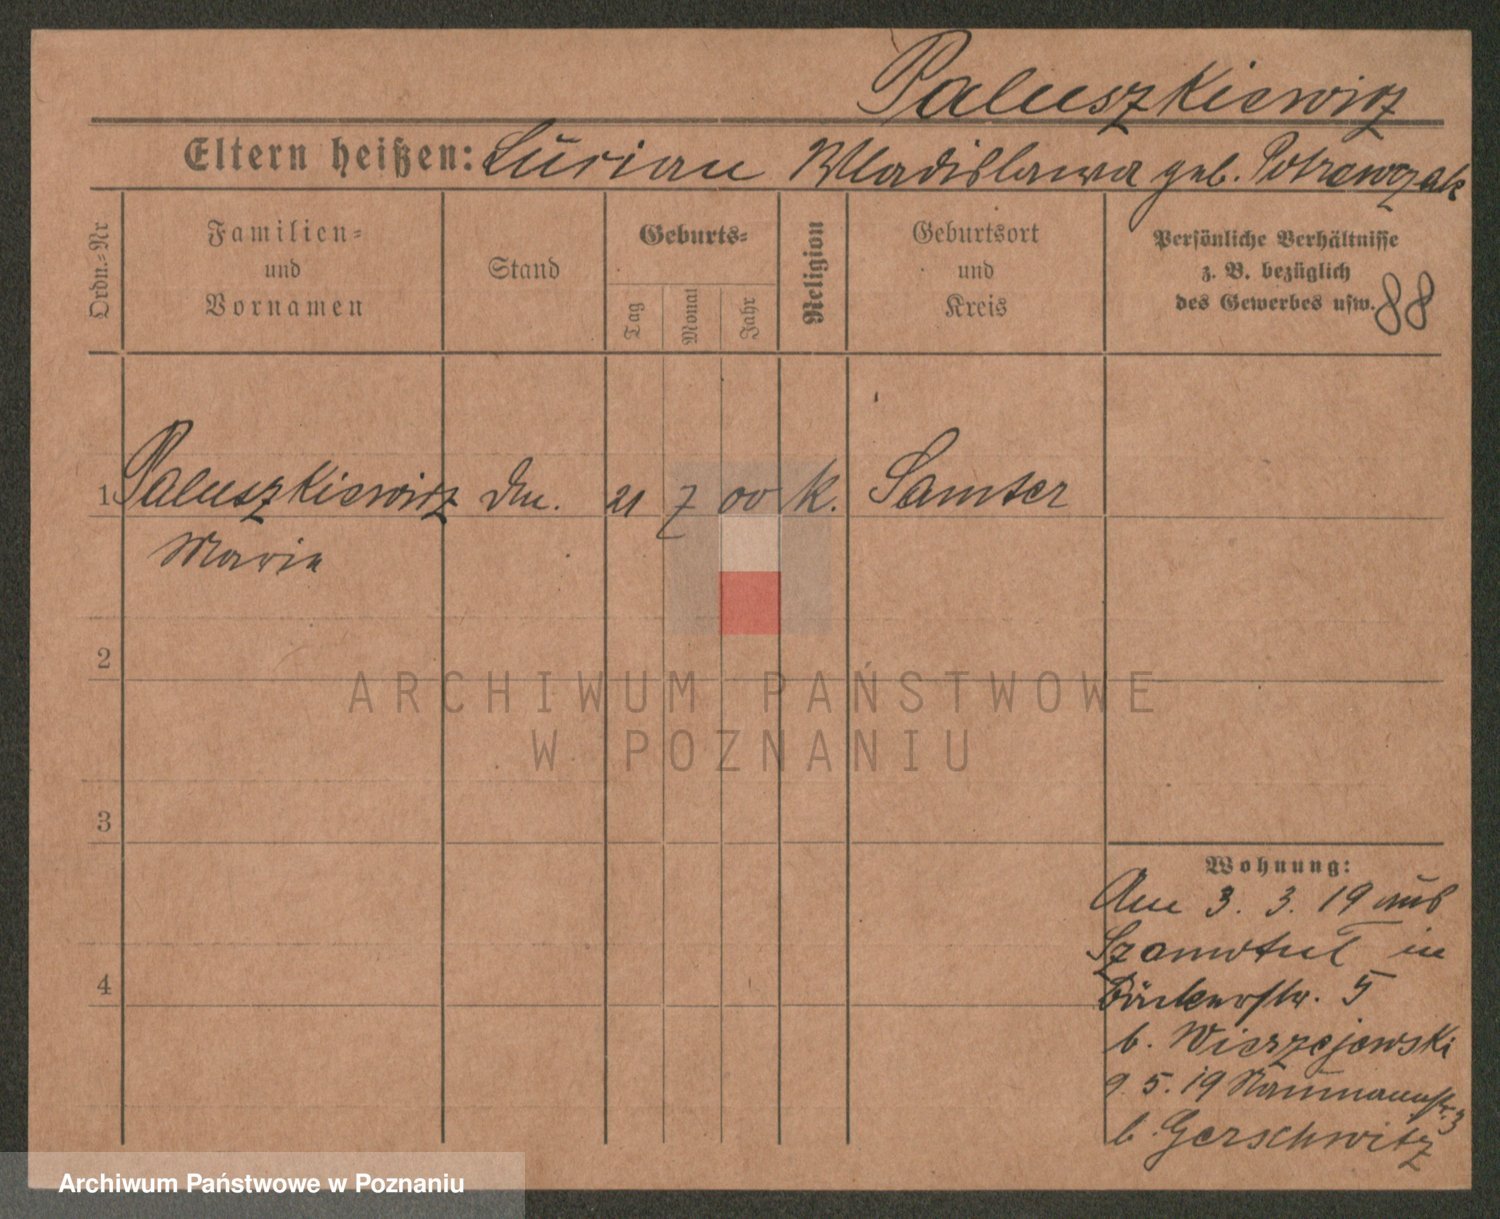 Paluszkiewicz
Eltern heißen: Lucian Wladislawa geb. Potrawczak
Ordn.-Nr
Familien-
und
Vornamen
Stand
Geburts-
Tag
Monat
Jahr
Religion
Geburtsort
und
Kreis
Persönliche Verhältnisse
z. B. bezüglich
des Gewerbes usw.
88
1 Paluszkiewicz 21 7 00 K. Samter
Marie
2
ARCHIWUM PAŃSTWOWE
W POZNANIU
3
Wohnung:
Am 3. 3. 19 aus
Szamotul in
4
Bäckerstr. 5
b. Wierzejewski
9. 5. 19 Naumannstr. 3
b. Gerschwitz
Archiwum Państwowe w Poznaniu